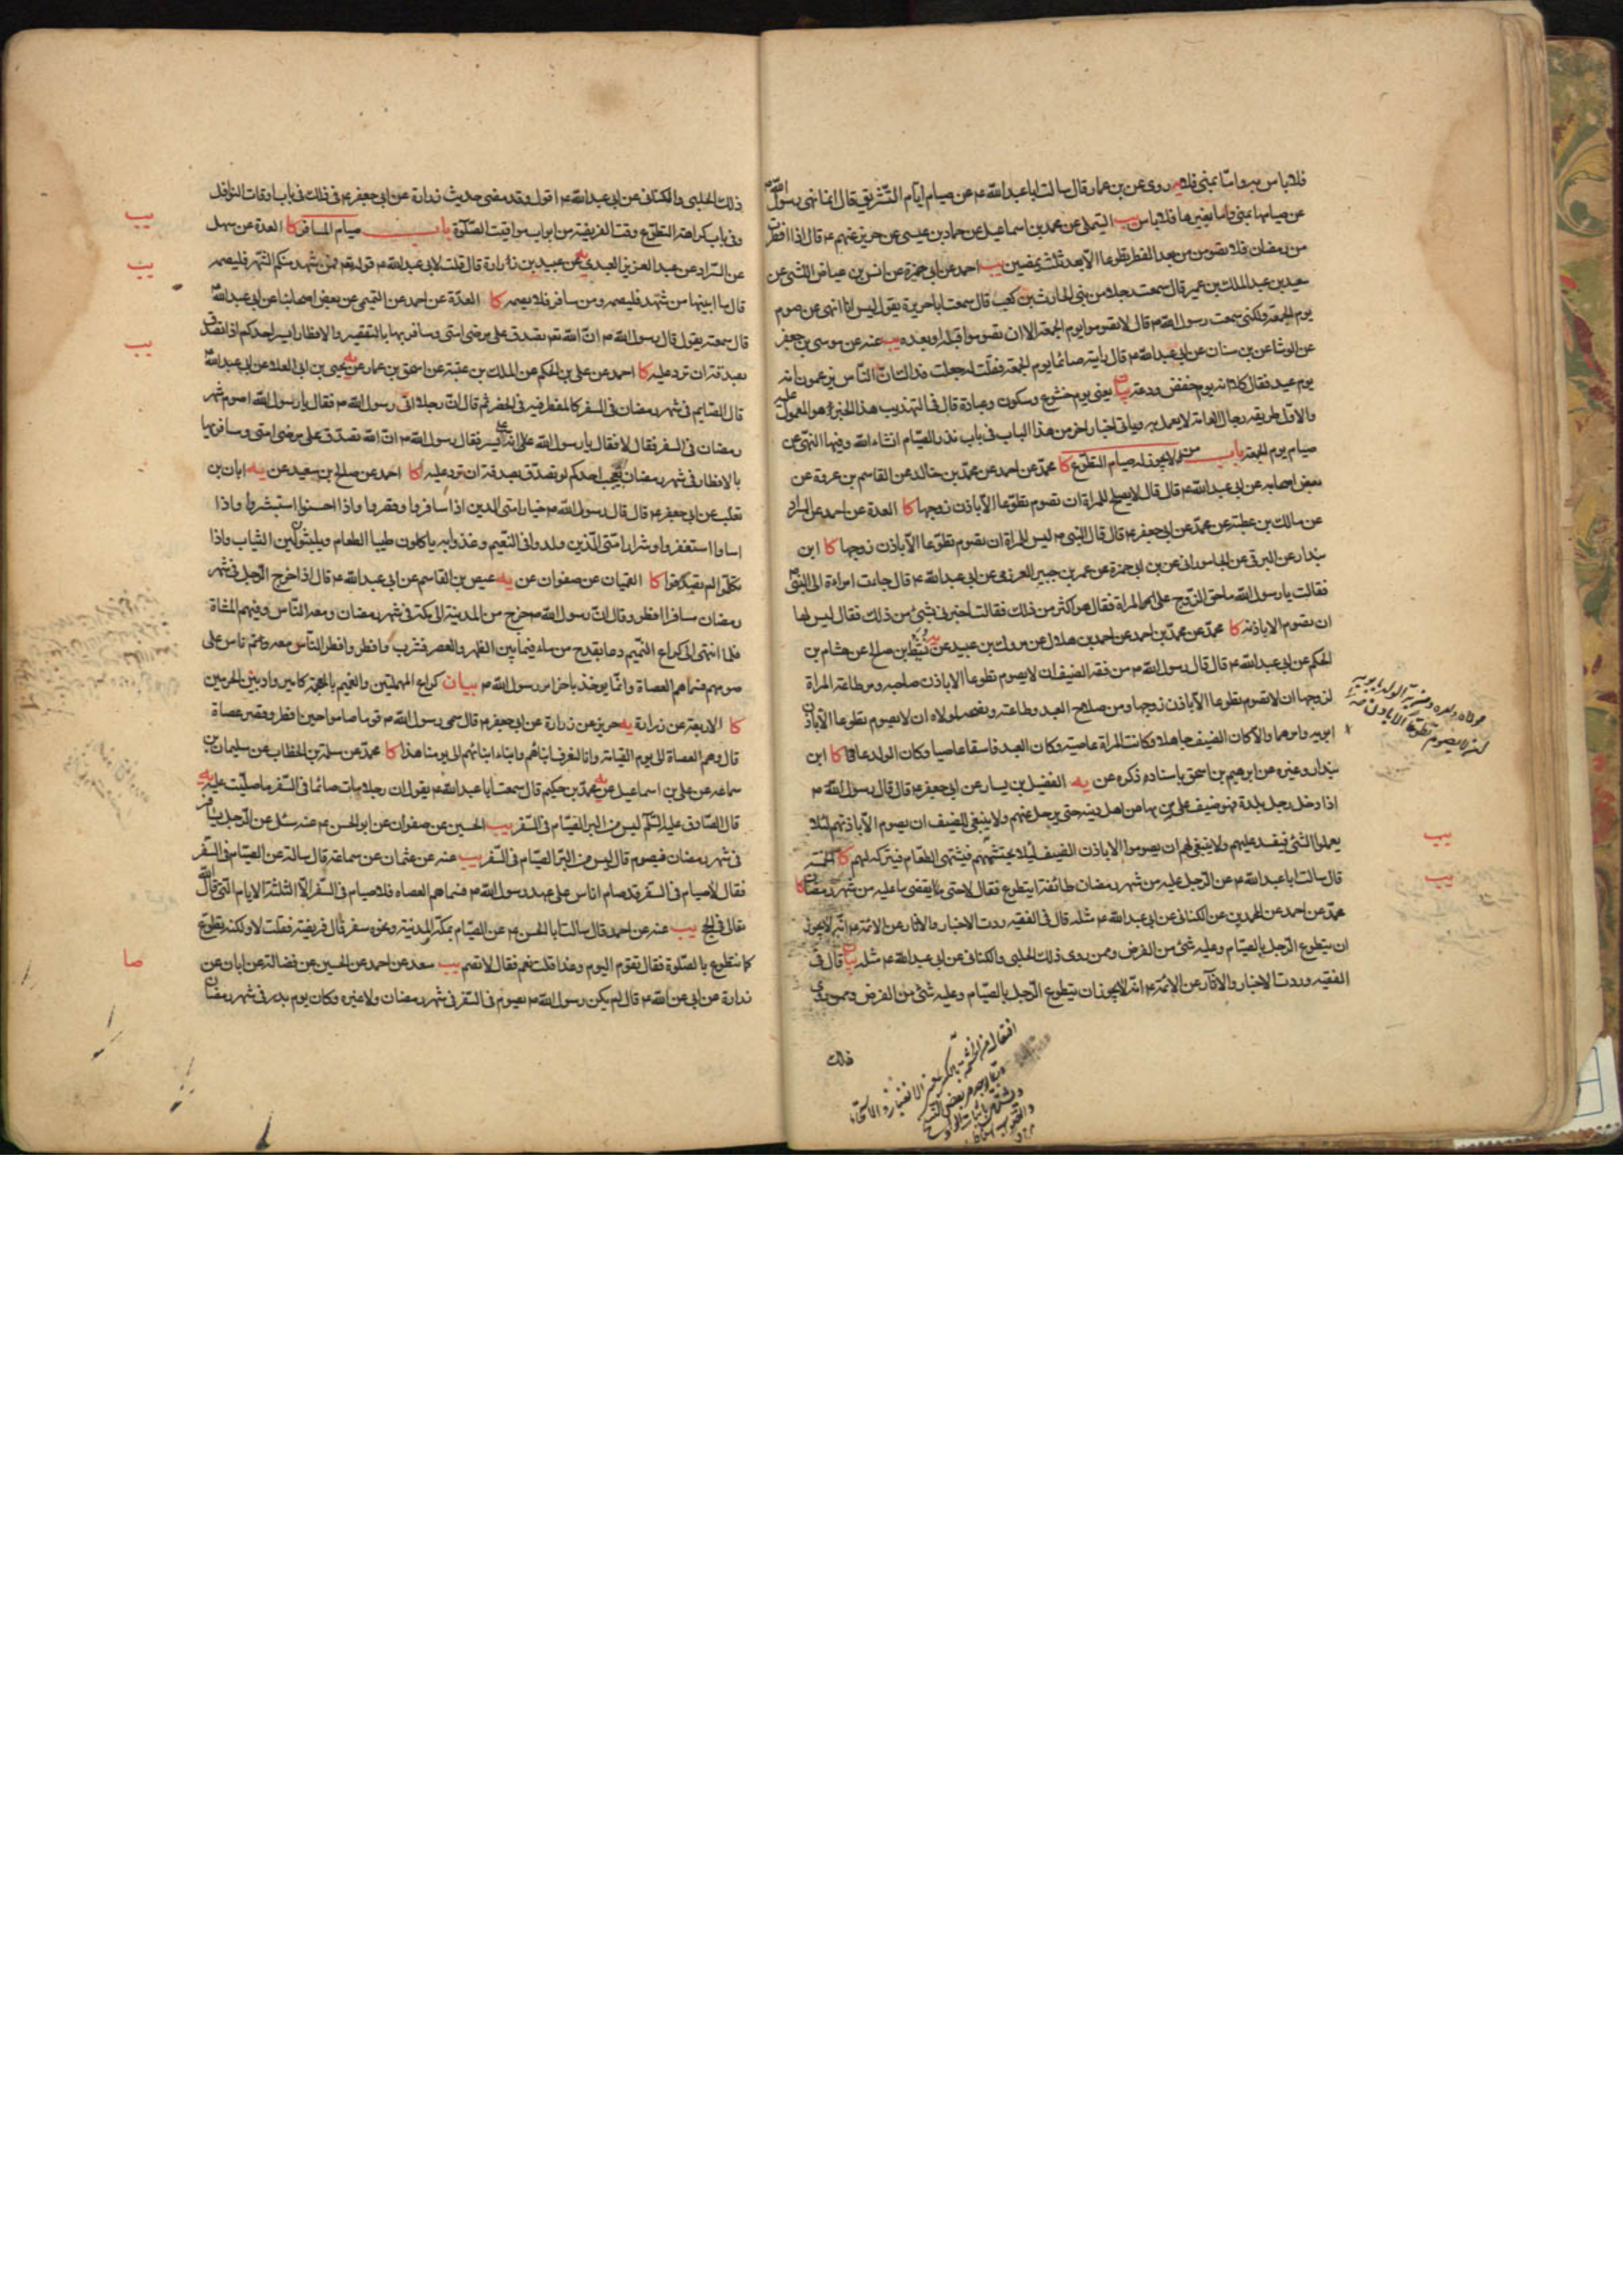 فلا باس به واما بمنى فلا يه روى عن بن عمار قال سالت ابا عبد الله ع عن صيام ايام التشريق قال انما نهى رسول الله ص
عن صيامها بمنى واما بغيرها فلا باس يب التيملى عن محمد بن اسماعيل عن حماد بن عيسى عن حريز عنهم ع قال اذا افطرت
من رمضان فلا تصومن من بعد الفطر تطوعا الا بعد ثلث يمضين يب احمد عن ابى حمزة عن انس بن عياض الليثى عن
سعيد بن عبد الملك بن عمير قال سمعت رجلا من بنى الحارث بن كعب قال سمعت ابا هريرة يقول ليس انا انهى عن صوم
يوم الجمعة ولكنى سمعت رسول الله ص قال لا تصوموا يوم الجمعة الا ان تصوموا قبله او بعده يب عنه عن موسى بن جعفر
عن الوشا عن بن سنان عن ابى عبد الله ع قال رايته صائما يوم الجمعة فقلت له جعلت فداك ان الناس يزعمون انه
يوم عيد فقال كلا انه يوم خفض ودعة بيان يعنى يوم خشوع وسكون وعبادة قال فى التهذيب هذا الخبر هو المعمول عليه
والاول طريقه رجال العامة لا يعمل به وياتى اخبار اخر من هذا الباب فى باب نذر الصيام انشاء الله وفيها النهى عن
صيام يوم الجمعة باب من لا يجوز له صيام التطوع كا محمد عن احمد عن محمد بن خالد عن القاسم بن عروة عن
بعض اصحابه عن ابى عبد الله ع قال قال لا يصلح للمراة ان تصوم تطوعا الا باذن زوجها كا العدة عن احمد عن السراد
عن مالك بن عطية عن محمد عن ابى جعفر ع قال قال النبى ص ليس للمراة ان تصوم تطوعا الا باذن زوجها كا ابن
بندار عن البرقى عن الجامورانى عن بن ابى حمزة عن عمر بن جبير العرزمى عن ابى عبد الله ع قال جاءت امراة الى النبى ص
فقالت يا رسول الله ما حق الزوج على المراة فقال هو اكثر من ذلك فقالت اخبرنى بشئ من ذلك فقال ليس لها
ان تصوم الا باذنه كا محمد عن محمد بن احمد عن احمد بن هلال عن مروك بن عبيد عن نشيط بن صالح عن هشام بن
الحكم عن ابى عبد الله ع قال قال رسول الله ص من فقه الضيف ان لا يصوم تطوعا الا باذن صاحبه ومن طاعة المراة
لزوجها ان لا تصوم تطوعا الا باذن زوجها ومن صلاح العبد وطاعته ونصحه لمولاه ان لا يصوم تطوعا الا باذن
ابويه وامرهما والا كان الضيف جاهلا وكانت المراة عاصية وكان العبد فاسقا عاصيا وكان الولد عاقا كا ابن
بندار وغيره عن ابرهيم بن اسحق باسناده ذكره عن يه الفضيل بن يسار عن ابى جعفر ع قال قال رسول الله ص
اذا دخل رجل بلدة فهو ضيف على من بها من اهل دينه حتى يرحل عنهم ولا ينبغى للضيف ان يصوم الا باذنهم لئلا
يعملوا الشئ فيفسد عليهم ولا ينبغى لهم ان يصوموا الا باذن الضيف لئلا يحتشمهم فيشتهى الطعام فيتركه لهم كا الخمسة
قال سالت ابا عبد الله ع عن الرجل عليه من شهر رمضان طائفة ايتطوع فقال لا حتى يقضى ما عليه من شهر رمضان كا
محمد عن احمد عن المحمدين عن الكنانى عن ابى عبد الله ع مثله قال فى الفقيه وردت الاخبار والاثار عن الائمة ع انه لا يجوز
ان يتطوع الرجل بالصيام وعليه شئ من الفرض وممن روى ذلك الحلبى والكنانى عن ابى عبد الله ع مثله بيان قال فى
الفقيه وردت الاخبار والاثار عن الائمة ع انه لا يجوز ان يتطوع الرجل بالصيام وعليه شئ من الفرض وممن روى
ذلك
يب
يب
ذلك الحلبى والكنانى عن ابى عبد الله ع اقول وقد مضى حديث زرارة عن ابى جعفر ع فى ذلك فى باب اوقات النوافل
وفى باب كراهة التطوع وقت الفريضة من ابواب مواقيت الصلوة باب صيام المسافر كا العدة عن سهل
عن السراد عن عبد العزيز العبدى عن عبيد بن زرارة قال قلت لابى عبد الله ع قوله تع فمن شهد منكم الشهر فليصمه
قال ما ابينها من شهد فليصمه ومن سافر فلا يصمه كا العدة عن احمد عن التميمى عن بعض اصحابنا عن ابى عبد الله ع
قال سمعته يقول قال رسول الله ص ان الله تع تصدق على مرضى امتى ومسافريها بالتقصير والافطار ايسر احدكم اذا تصدق
بصدقة ان ترد عليه كا احمد عن على بن الحكم عن عبد الملك بن عتبة عن اسحق بن عمار عن يحيى بن ابى العلا عن ابى عبد الله ع
قال الصايم فى شهر رمضان فى السفر كالمفطر فيه فى الحضر ثم قال ان رجلا اتى رسول الله ص فقال يا رسول الله اصوم شهر
رمضان فى السفر فقال لا فقال يا رسول الله انه على يسير فقال رسول الله ص ان الله تصدق على مرضى امتى ومسافريها
بالافطار فى شهر رمضان ايعجب احدكم لو تصدق بصدقة ان ترد عليه كا احمد عن صالح بن سعيد عن يه ابان بن
تغلب عن ابى جعفر ع قال قال رسول الله ص خيار امتى الذين اذا سافروا افطروا وقصروا واذا احسنوا استبشروا واذا
اساوا استغفروا وشرار امتى الذين ولدوا فى النعيم وغذوا به ياكلون طيب الطعام ويلبسون لين الثياب واذا
تكلموا لم يصدقوا كا القميان عن صفوان عن يه عيص بن القاسم عن ابى عبد الله ع قال اذا خرج الرجل فى شهر
رمضان مسافرا افطر وقال ان رسول الله ص خرج من المدينة الى مكة فى شهر رمضان ومعه الناس وفيهم المشاة
فلما انتهى الى كراع الغميم دعا بقدح من ماء فيما بين الظهر والعصر فشرب وافطر وافطر الناس معه وتم ناس على
صومهم فسماهم العصاة وانما يوخذ باخر امر رسول الله ص بيان كراع المهملتين والغميم بالمعجمة كامير واد بين الحرمين
كا الاربعة عن زرارة يه حريز عن زرارة عن ابى جعفر ع قال سمى رسول الله ص قوما صاموا حين افطر وقصر عصاة
قال وهم العصاة الى يوم القيامة وانا لنعرف ابناءهم وابناء ابنائهم الى يومنا هذا كا محمد عن سلمة بن الخطاب عن سليمان بن
سماعة عن على بن اسماعيل عن محمد بن حكيم قال سمعت ابا عبد الله ع يقول لو ان رجلا مات صائما فى السفر ما صليت عليه يه
قال الصادق عليه السلم ليس من البر الصيام فى السفر يب الحسين عن صفوان عن ابى الحسن ع انه سئل عن الرجل يسافر
فى شهر رمضان فيصوم قال ليس من البر الصيام فى السفر يب عنه عن عثمان عن سماعة قال سالته عن الصيام فى السفر
فقال لا صيام فى السفر قد صام اناس على عهد رسول الله ص فسماهم العصاه فلا صيام فى السفر الا الثلثة الايام التى قال الله
تعالى فى الحج يب عنه عن احمد قال سالت ابا الحسن ع عن الصيام بمكة والمدينة ونحن سفر قال فريضة فقلت لا ولكنه تطوع
كما نتطوع بالصلوة فقال تقوم اليوم وغدا قلت نعم فقال لا تصم يب سعد عن احمد عن الحسين عن فضالة عن ابان عن
زرارة عن ابى عبد الله ع قال لم يكن رسول الله ص يصوم فى السفر فى شهر رمضان ولا غيره وكان يوم بدر فى شهر رمضان
يب
يب
يب
صا